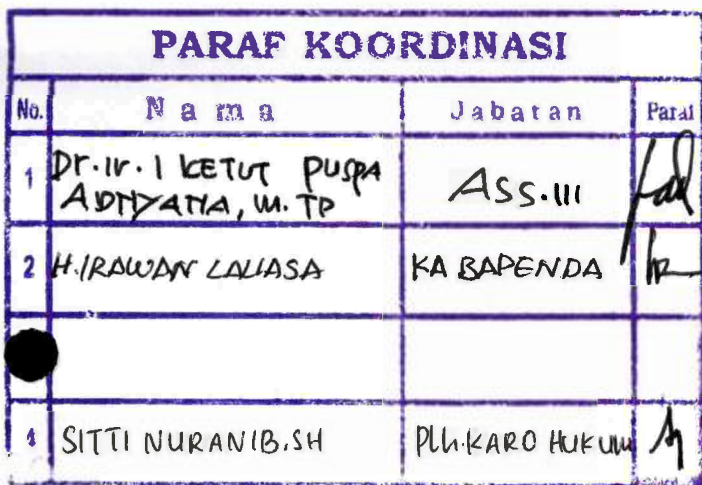 PARAF KOORDINASI
No. Nama Jabatan Paraf
1 Dr. Ir. I KETUT PUSPA ADNYANA, M.TP ASS.III
2 H. IRAWAN LALIASA KA BAPENDA
4 SITTI NURANIB.SH Plh.KARO HUKUM